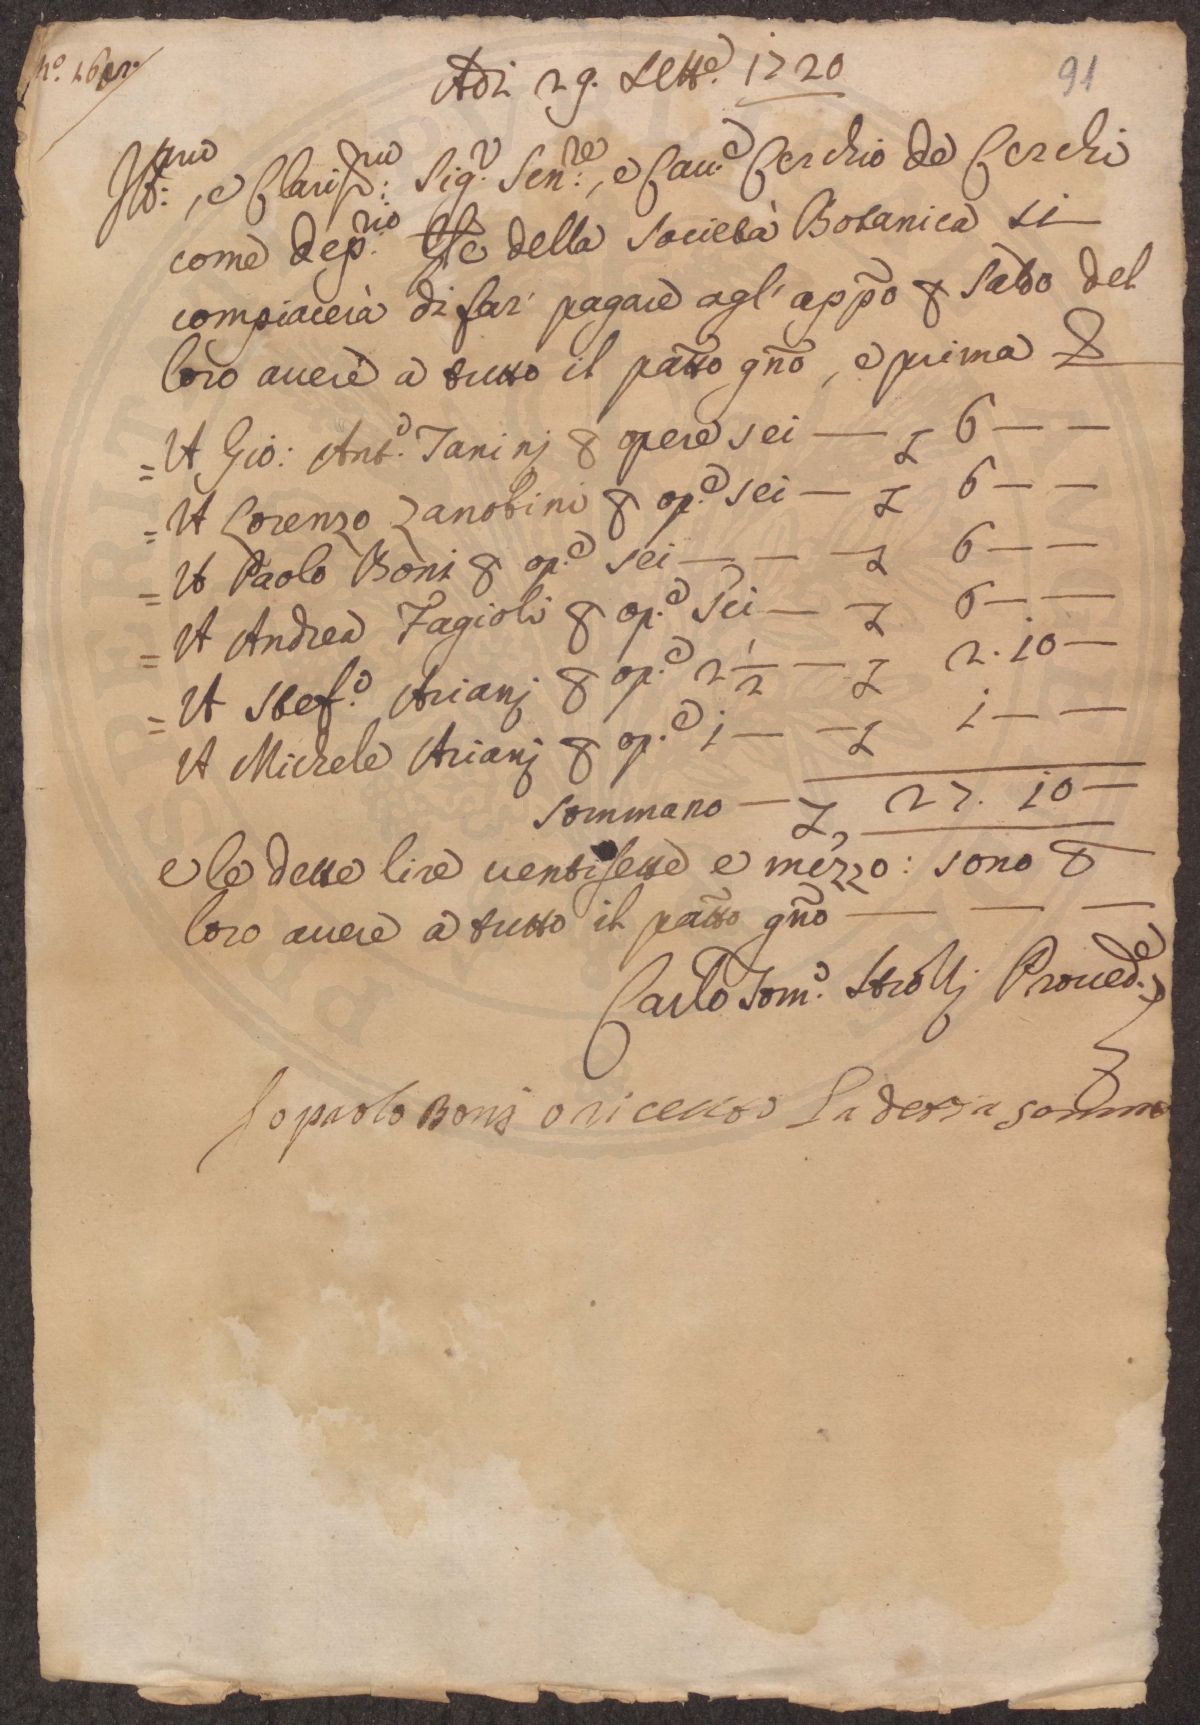 91
Adì 29. Sett.e 1720
Ill.mo, e Clariss.mo Sig.r Sen.re, e Cau.e Cerchio de Cerchi
come dep.rio della Società Botanica si
compiacerà di far' pagare agl' app̃o p Saldo del
loro auere à tutto il pañto gño, e prima p
= A Gio: Ant.o Taninj p opere sei — L 6 — —
= A Lorenzo Zanobini p op.e sei — L 6 — —
= A Paolo Boni p op.e sei — — L 6 — —
= A Andrea Fagioli p op.e sei — L 6 — —
= A Stef.o Arianj p op.e 2 1/2 — L 2. 10 —
A Michele Arianj p op.e 1 — — L 1 — —
Sommano — L 27. 10 —
e le dette lire uentisette e mezzo: sono p
loro auere à tutto il pañto gño — — —
Carlo Tom.o Strozzj Proued.e
Io paolo Bonj o riceuto La detta somma